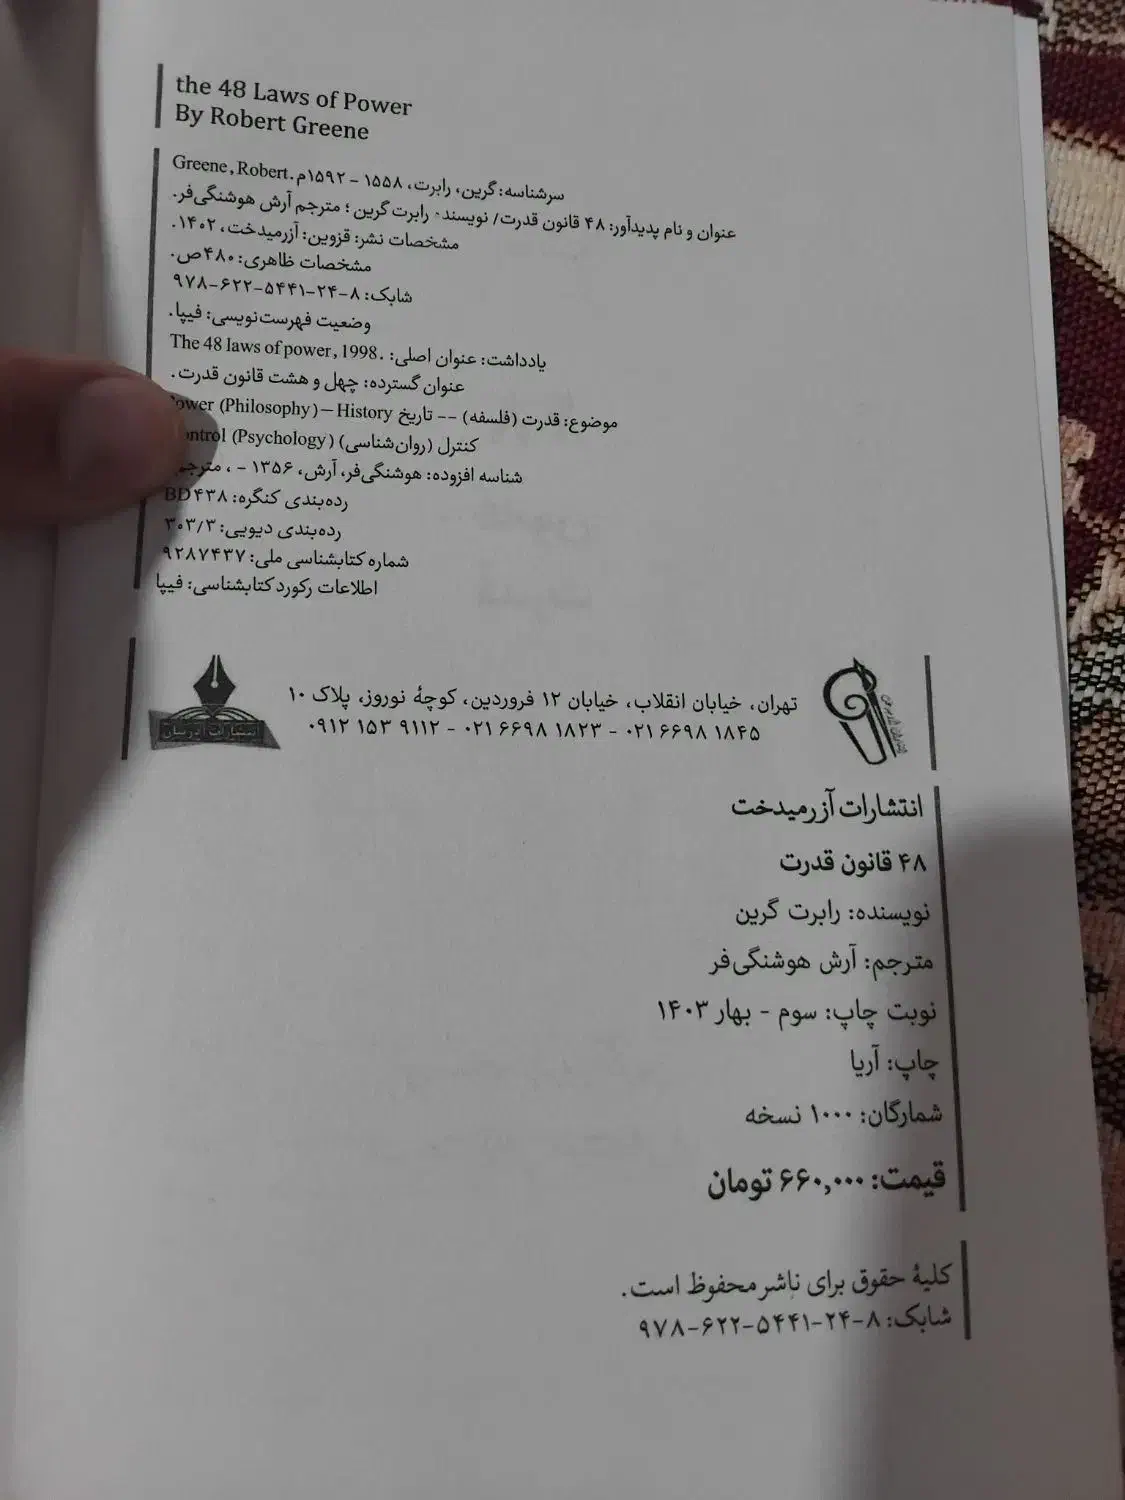 the 48 Laws of Power
By Robert Greene
سرشناسه: گرین، رابرت، ۱۵۵۸ - ۱۵۹۲م. Greene, Robert
عنوان و نام پدیدآور: ۴۸ قانون قدرت/ نویسنده رابرت گرین ؛ مترجم آرش هوشنگی‌فر.
مشخصات نشر: قزوین: آزرمیدخت، ۱۴۰۲.
مشخصات ظاهری: ۴۸۰ص.
شابک: ۸-۲۴-۵۴۴۱-۶۲۲-۹۷۸
وضعیت فهرست‌نویسی: فیپا.
یادداشت: عنوان اصلی: The 48 laws of power, 1998.
عنوان گسترده: چهل و هشت قانون قدرت.
موضوع: قدرت (فلسفه) -- تاریخ Power (Philosophy) – History
کنترل (روان‌شناسی) Control (Psychology)
شناسه افزوده: هوشنگی‌فر، آرش، ۱۳۵۶ - ، مترجم
رده‌بندی کنگره: BD۴۳۸
رده‌بندی دیویی: ۳۰۳/۳
شماره کتابشناسی ملی: ۹۲۸۷۴۳۷
اطلاعات رکورد کتابشناسی: فیپا
تهران، خیابان انقلاب، خیابان ۱۲ فروردین، کوچهٔ نوروز، پلاک ۱۰
۰۲۱ ۶۶۹۸ ۱۸۴۵ - ۰۲۱ ۶۶۹۸ ۱۸۲۳ - ۰۹۱۲ ۱۵۳ ۹۱۱۲
انتشارات آزرمیدخت
۴۸ قانون قدرت
نویسنده: رابرت گرین
مترجم: آرش هوشنگی‌فر
نوبت چاپ: سوم - بهار ۱۴۰۳
چاپ: آریا
شمارگان: ۱۰۰۰ نسخه
قیمت: ۶۶۰,۰۰۰ تومان
کلیهٔ حقوق برای ناشر محفوظ است.
شابک: ۸-۲۴-۵۴۴۱-۶۲۲-۹۷۸